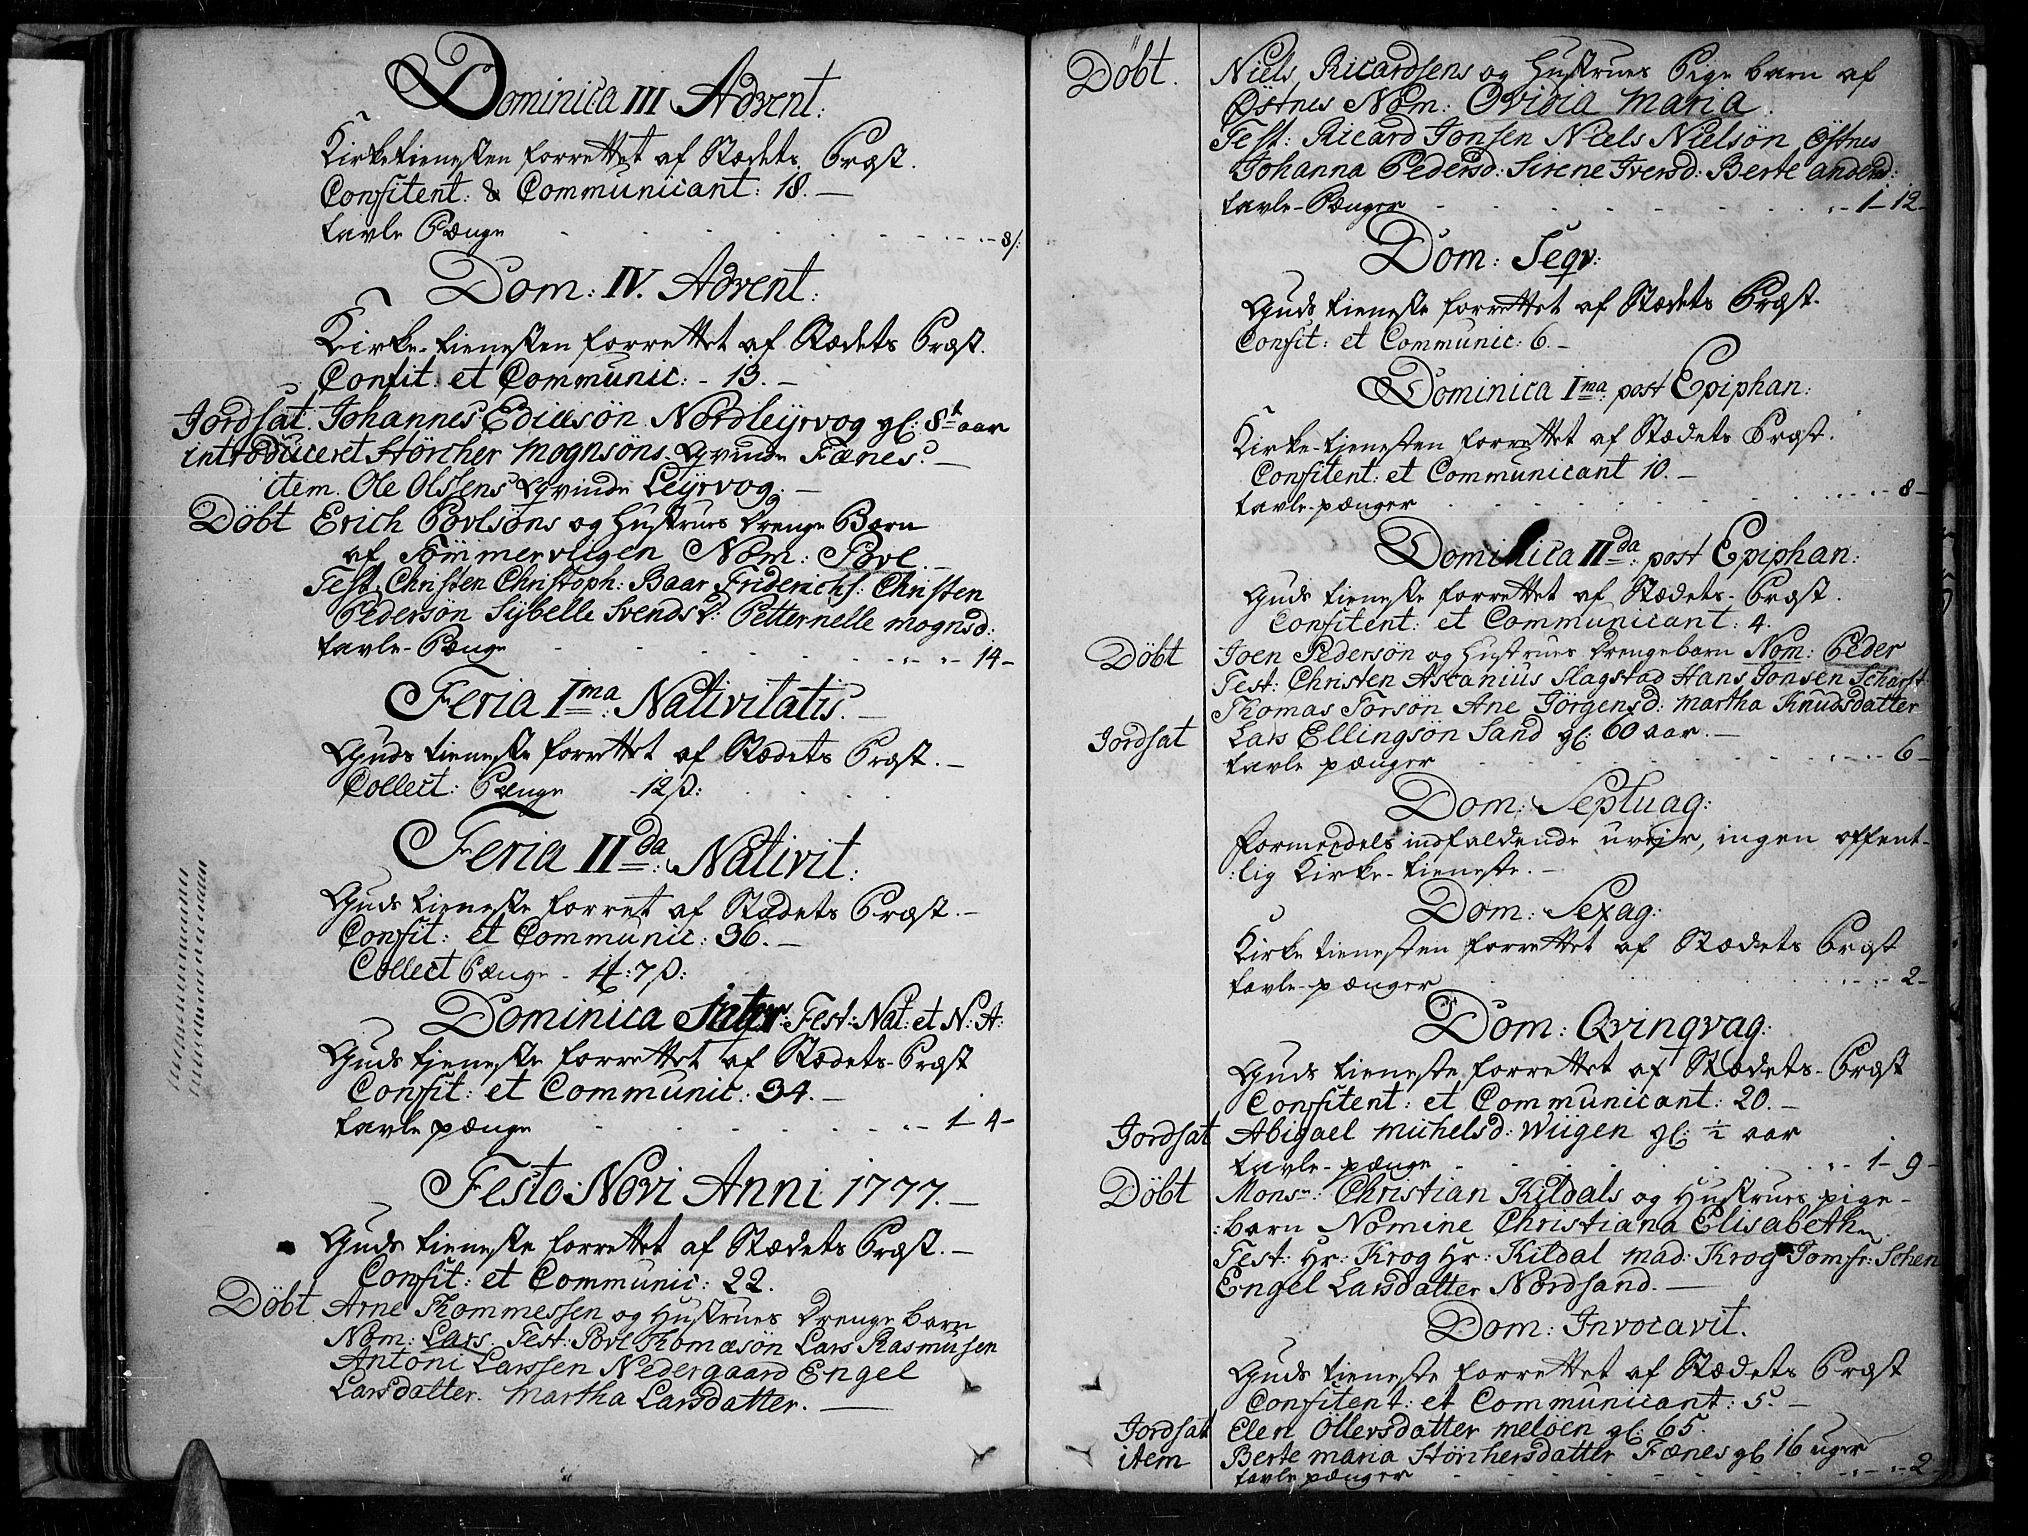 Dominica III Advent:
Kirketienesten forrettet af Stædets Præst.
Confitent: & Communicant: 18. —
tavle Pænge - - - 8ß:
Dom: IV. Advent:
Kirke-tienesten forrettet af Stædets Præst.
Confit: et Communic: - 13. —
Jordsat. Johannes Nordleyrvog gl: 8t aar
introduceret Störcher Mognsöns qvinde Fænes. —
item. Ole Olssens qvinde Leyrvog. —
Döbt Erich Povlsöns og Hustrues Drenge Barn
af Tömmervligen Nom: Povl. —
Test. Christen Christoph: Baar Friderichs: Christen
Pedersön Sybelle Svendsd: Petternelle mognsd:
tavle-Pænge - - - 14 -
Feria Ima: Nativitatis. —
Guds tieneste forrettet af Stædets Præst. —
Collect: Pænge - 12ß:
Feria IIda: Nativit:
Guds tieneste forret af Stædets Præst. —
Confit: et Communic: 36. —
Collect Pænge - 7ß:
Dominica Inter: Fest: Nat: et N: A:
Guds tjeneste forrettet af Stædets Præst
Confit: et Communic: 34. —
tavle pænge - - - 1 - 4 -
Festo Novi Anni 1777. —
Guds tieneste forrettet af Stædets Præst. —
Confit: et Communic: 22.
Döbt Arne Thommessen og Hustrues Drenge barn
Nom: Lars. Test: Povl Thomæsön Lars Rasmussen
Antoni Larssen Nedergaard Engel
Larsdatter. Martha Larsdatter. —
Döbt. Niels Ricardsens og Hustrues Pige barn af
Östnes Nom: Ovidia Maria.
Test: Ricard Jonsen Niels Nielsön Östnes
Johanna Pedersd: Sirene Iversd: Berte Andersd:
tavle-Pænger - - - 1 - 12 -
Dom: Seqv:
Guds tieneste forrettet af Stædets Præst.
Confit: et Communic: 6. —
Dominica Ima: post Epiphan:
Kirke-tjenesten forrettet af Stædets Præst.
Confitent: et Communicant 10. —
tavle-pænger - - - 8 -
Dominica IIda: post Epiphan:
Guds tieneste forrettet af Stædets Præst.
Confitent: et Communicant: 4.
Döbt Joen Pedersön og Hustrues Drengebarn Nom: Peder
Test: Christen Ascanius Slagstad Hans Jonsen Scharst
Thomas Torson Ane Jörgensd: Martha Knudsdatter
Jordsat Lars Ellingsön Sand gl: 60 aar. —
tavle pænger - - - 6 -
Dom: Septuag:
Formedels indfaldende uvejr, ingen offent-
:lig Kirke-tieneste. —
Dom: Sexag:
Kirke tienesten forrettet af Stædets Præst
tavle-pænger - - - 2 -
Dom: Qvinqvag:
Guds tieneste forrettet af Stædets Præst
Confitent: et Communicant: 20. —
Jordsat Abigael Michelsd: Wiigen gl: ½ aar
tavle-pænge - - - 1 - 9 -
Döbt Monsr: Christian Kildals og Hustrues pige-
:barn Nomine Christiana Elisabeth
Test: Hr: Krog Hr: Kildal Mad: Krog Jomfr: Schen
Engel Larsdatter Nordsand. —
Dom: Invocavit.
Guds tieneste forrettet af Stædets Præst
Confitent: et Communicant: 5. —
Jordsat Elen Ollersdatter Melöen gl: 65.
item Berte Maria Störchersdatter Fænes gl 16 uger
tavle pænger - - - 2 -